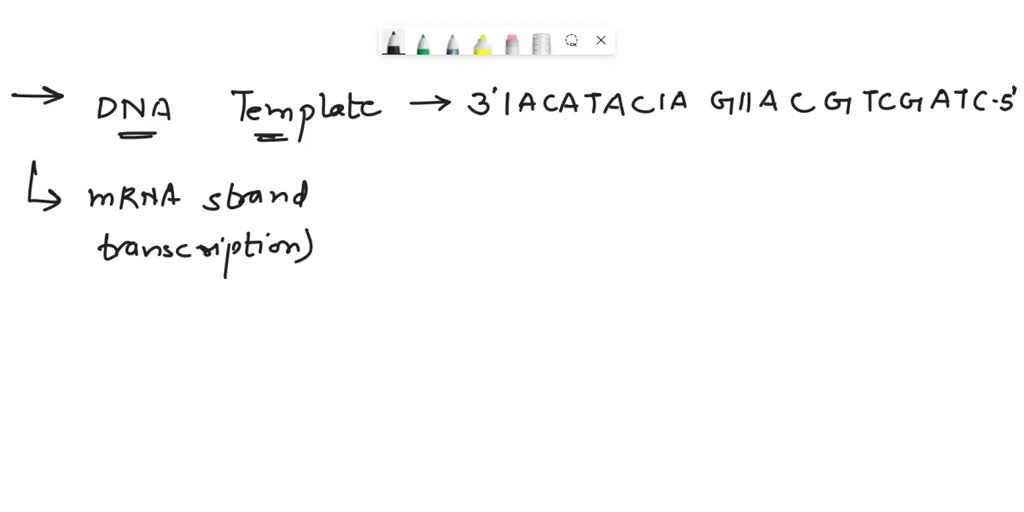 → DNA Template → 3' IACATACIA GIIA CGTCGATC-5'
↳ mRNA strand
transcription)